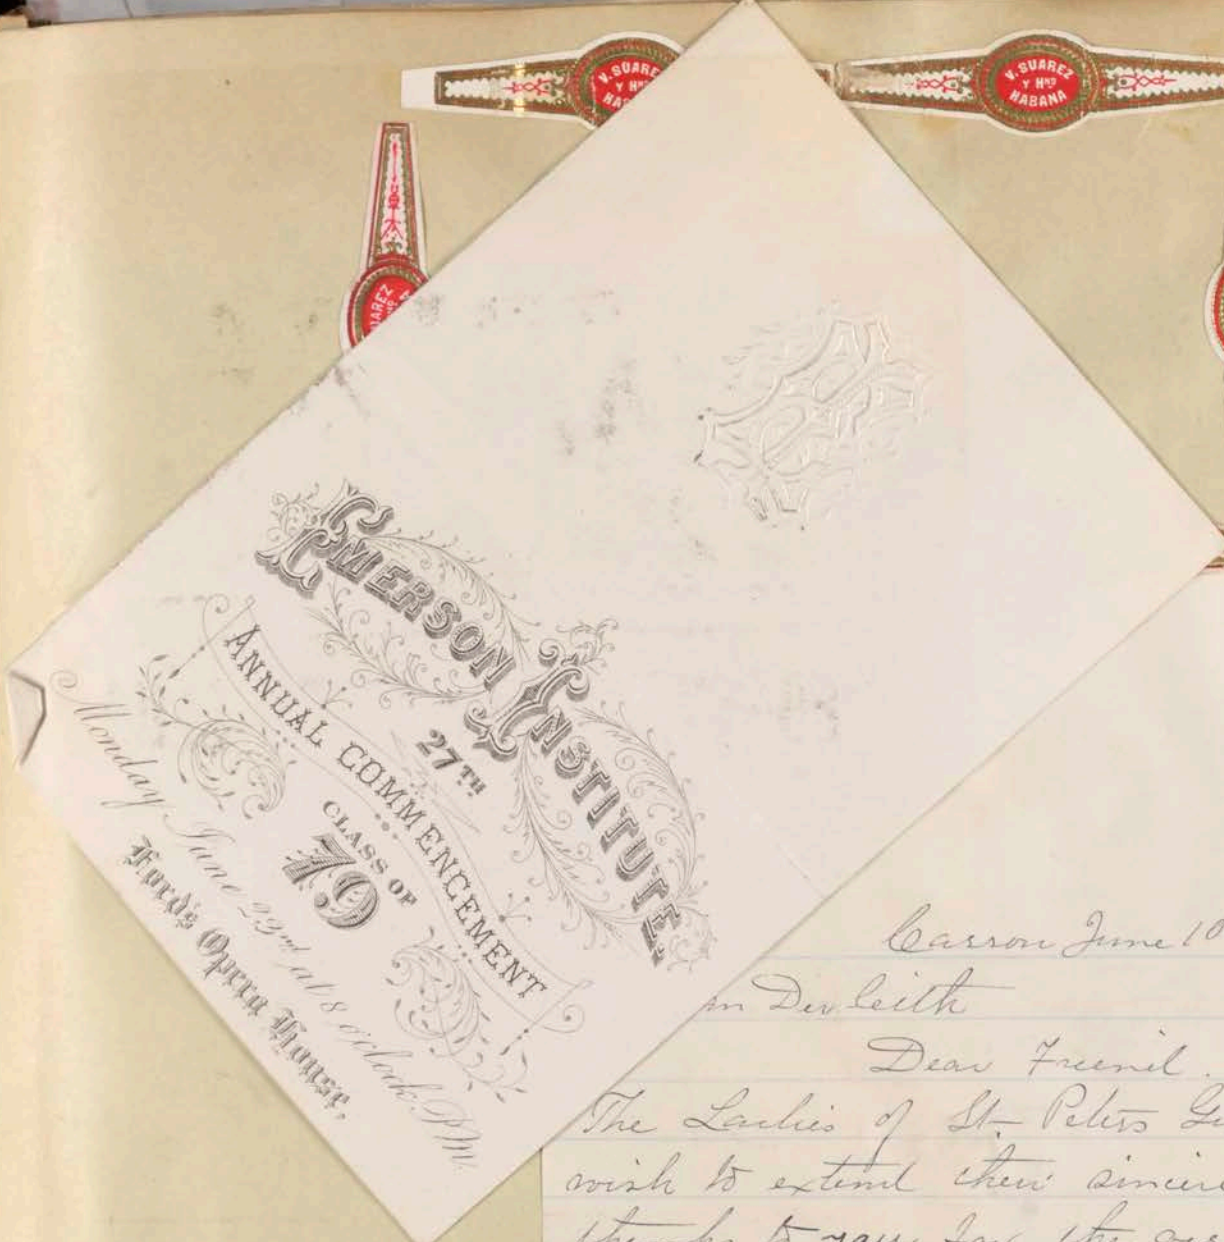 V. SUARE
Y H
HA
V. SUAREZ
Y HNO
HABANA
UAREZ
EMERSON INSTITUTE
27TH
ANNUAL COMMENCEMENT
CLASS OF
79
Monday June 23rd at 8 o'clock P.M.
Ford's Opera House,
Carson June 10
Dear Friend.
The Ladies of St. Peters Gu
wish to extend their sincere
thanks to you for the